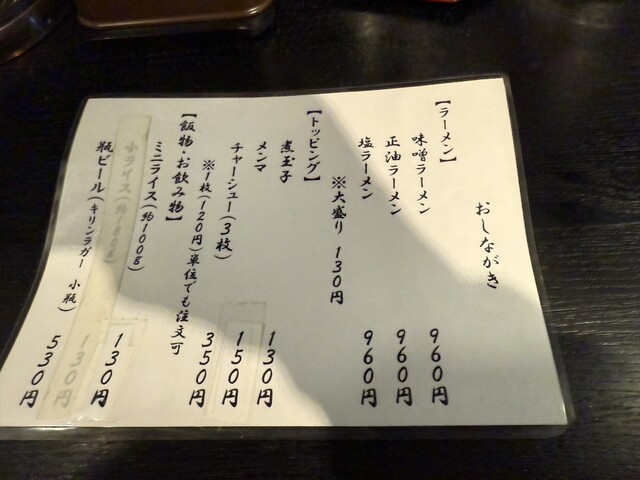 おしながき
【ラーメン】
味噌ラーメン 960円
正油ラーメン 960円
塩ラーメン 960円
※大盛り 130円
【トッピング】
煮玉子 130円
メンマ 150円
チャーシュー(3枚) 350円
※1枚(120円)単位でも注文可
【飯物・お飲み物】
ミニライス(約100g) 130円
小ライス
瓶ビール(キリンラガー 小瓶) 530円